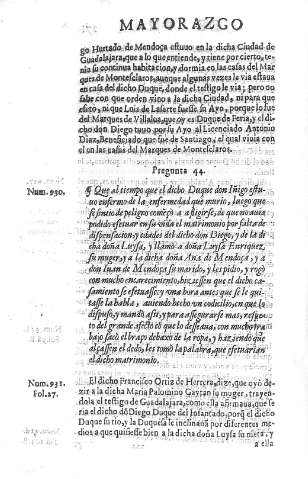 MAYORAZGO
go Hurtado de Mendoça estuuo en la dicha Ciudad de
Guadalajara, que a lo que entiende, y tiene por cierto, te-
nia su continua habitacion, y dormia en las casas del Mar
ques de Montesclaros, aunque algunas vezes le via estaua
en casa del dicho Duque, donde el testigo le via; pero no
sabe con que orden vino a la dicha Ciudad, ni para que
esito, ni que Luis de Lasarte fuesse su Ayo, porque lo fue
del Marques de Villalua, que oy es Duque de Feria, y el di-
cho don Diego tuuo por su Ayo al Licenciado Antonio
Diaz, Beneficiado que fue de Santiago, el qual viuia con
el en las casas del Marques de Montesclaros.
Pregunta 44.
Num. 930.
¶ Que al tiempo que el dicho Duque don Iñigo estu-
uo enfermo de la enfermedad que murio, luego que
se sintio de peligro començo a afligirse, de que no auia
podido efetuar en su vida el matrimonio por falta de
dispensacion, y edades del dicho don Diego, y de la di
cha doña Luysa, y llamò a doña Luysa Enriquez,
su muger, y a la dicha doña Ana de Mendoça, y a
don Iuan de Mendoça su marido, y les pidio, y rogò
con mucho encarecimiento, hiziessen que el dicho ca-
samiento se efetuasse: y vna hora antes que se le qui-
tasse la habla, auiendo hecho vn codicilio, en que lo
dispuso, y mandò assi, y para assegurarse mas, respec-
to del grande afecto cõ que lo desseaua, con mucho tra
bajo sacò el braço debaxo de la ropa, y haziendo que
alçassen el dedo, les tomò la palabra, que efetuarian
el dicho matrimonio.
Num. 931.
Fol. 27.
El dicho Francisco Ortiz de Herrera, dize, que oyò de-
zir a la dicha Maria Palomino Gaytan su muger, trayen-
dola el testigo de Guadalajara, como ella afirmaua, que se
ria el dicho dõ Diego Duque del Infantado, porq̃ el dicho
Duque su tio, y la Duquesa le inclinauã por diferentes me
dios a que quisiesse bien a la dicha doña Luysa su nieta, y
a ella